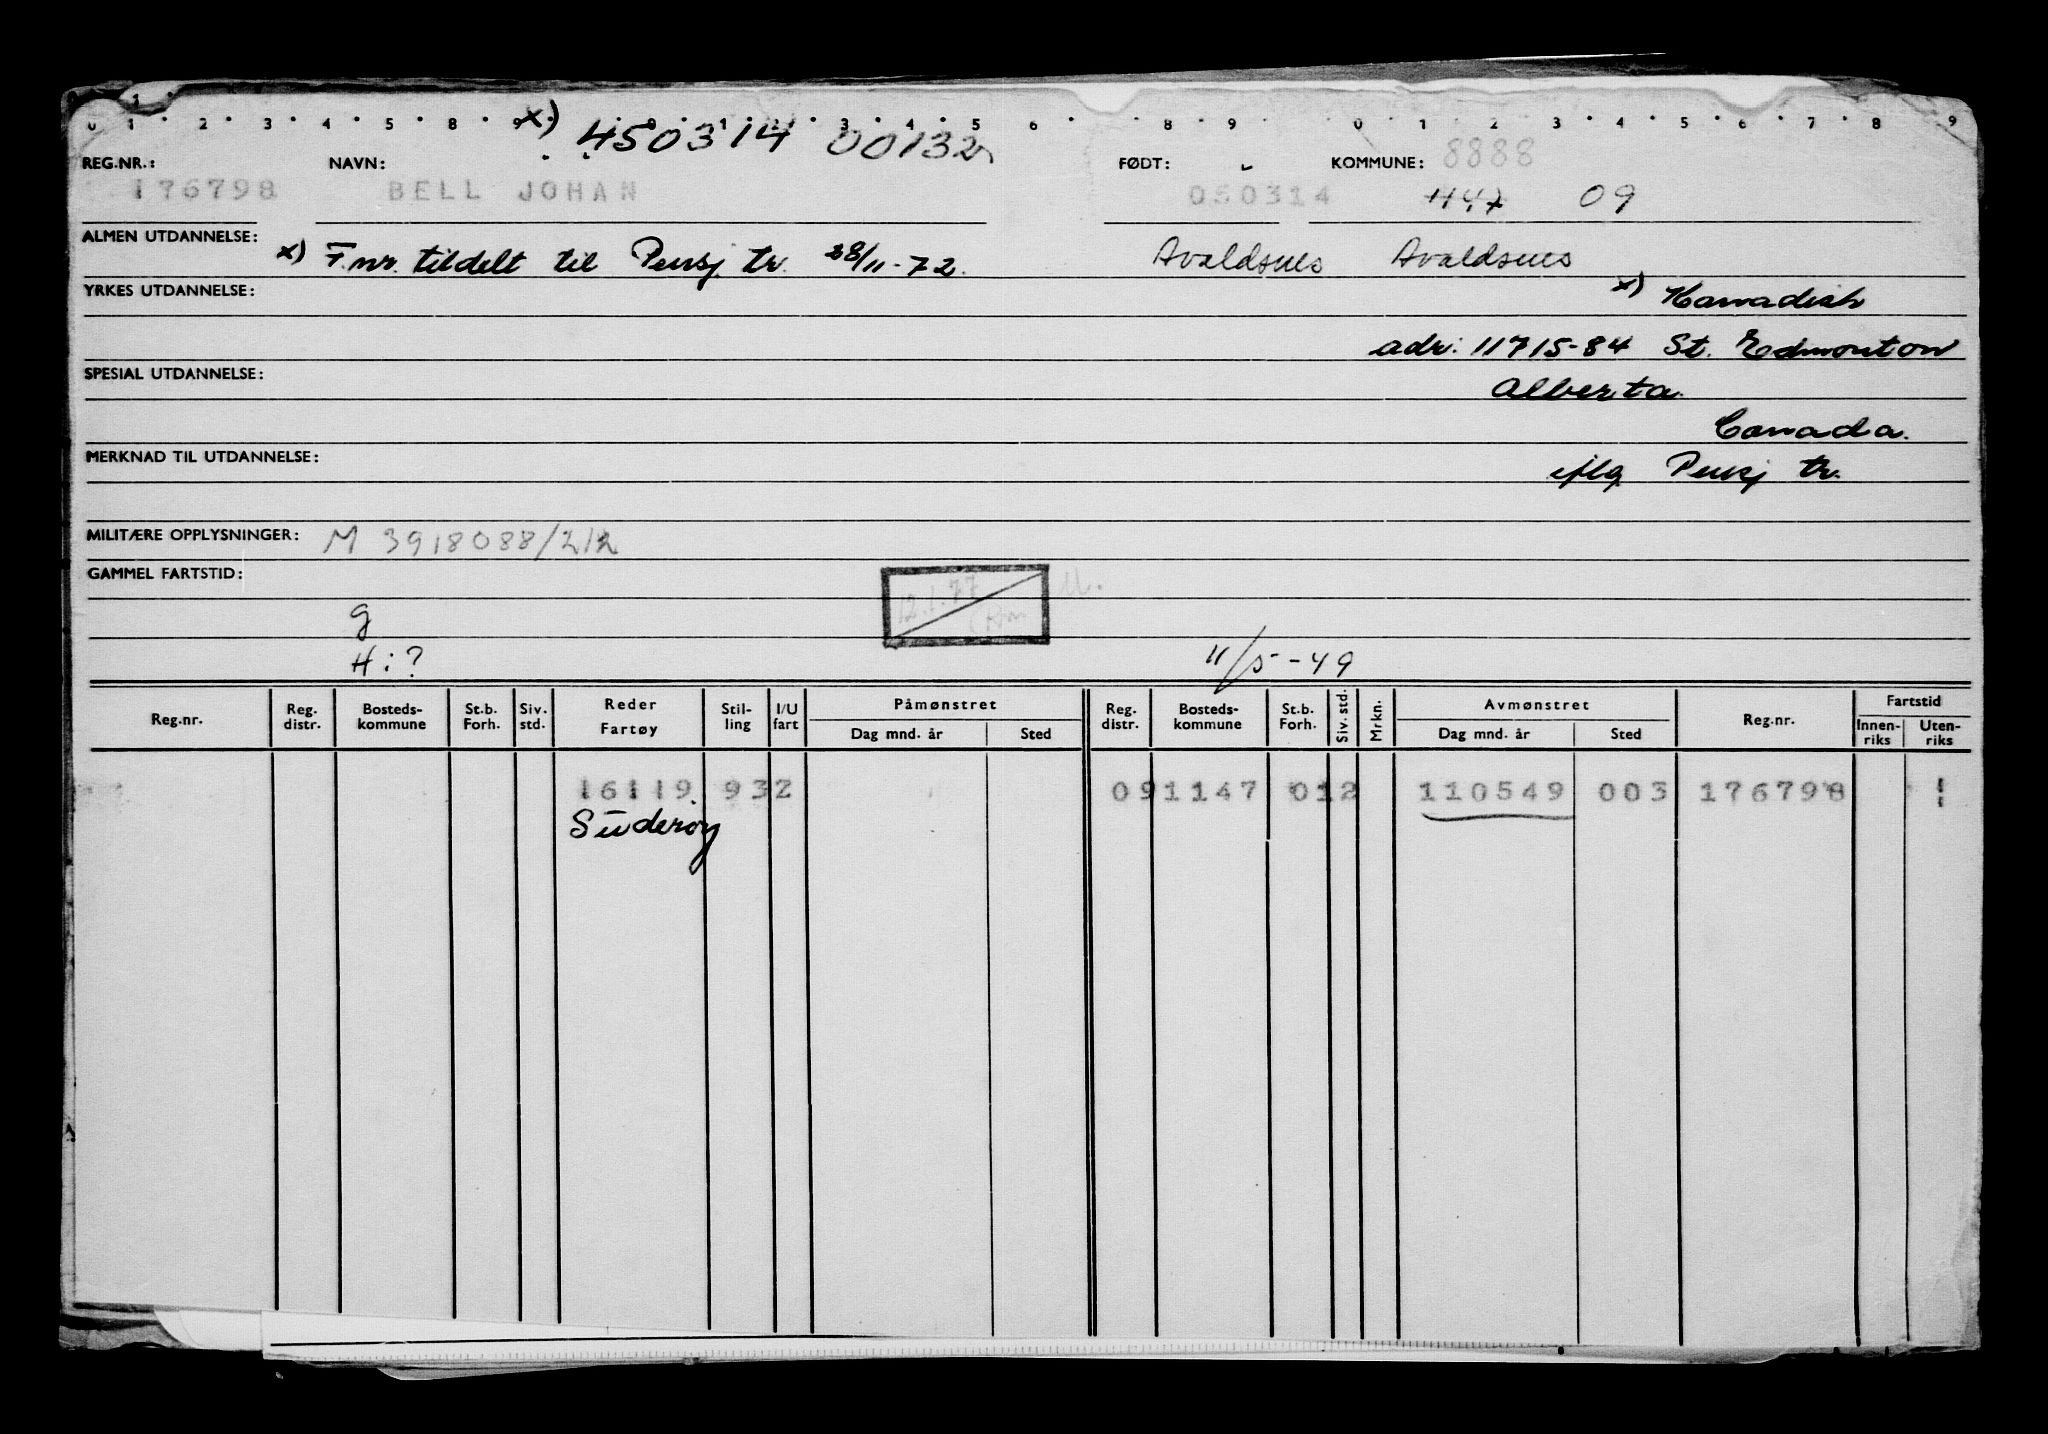 x) 450314 00132
0 1 2 3 4 5 8 9 0 1 2 3 4 5 6 8 9 0 1 2 3 4 5 6 7 8 9
REG.NR.: NAVN: FØDT: KOMMUNE: 8888
176798 BELL JOHAN 050314 1147 09
ALMEN UTDANNELSE: x) F.nr. tildelt til Pensj tr. 28/11-72. Avaldsnes Avaldsnes
YRKES UTDANNELSE: x) Kanadisk
adr: 11715-84 St. Edmonton
SPESIAL UTDANNELSE: Alberta
Canada.
MERKNAD TIL UTDANNELSE: iflg Pensj tr.
MILITÆRE OPPLYSNINGER: M 3918088/212
GAMMEL FARTSTID: 12.1.77
g
H i ? 11/5-49
Reg.nr. Reg. distr. Bosteds- kommune St.b. Forh. Siv. std. Reder Fartøy Stil- ling I/U fart Påmønstret Dag mnd. år Sted Reg. distr. Bosteds- kommune St.b. Forh. Siv. std. Mrkn. Avmønstret Dag mnd. år Sted Reg.nr. Fartstid Innen- riks Uten- riks
16119 932 091147 012 110549 003 176798
Suderøy